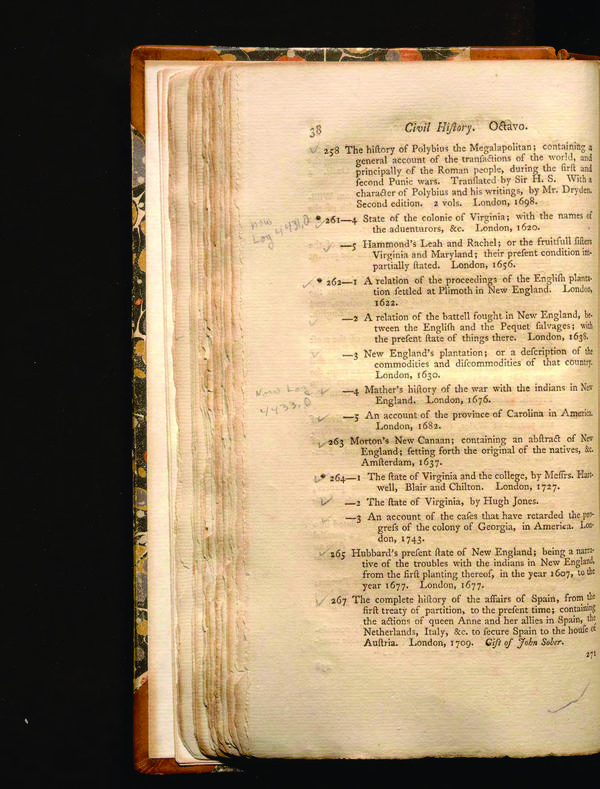 38 Civil Hiſtory. Octavo.
258 The hiſtory of Polybius the Megalapolitan; containing a
general account of the tranſactions of the world, and
principally of the Roman people, during the firſt and
ſecond Punic wars. Tranſlated by Sir H. S. With a
character of Polybius and his writings, by Mr. Dryden.
Second edition. 2 vols. London, 1698.
* 261—4 State of the colonie of Virginia; with the names of
the aduenturors, &c. London, 1620.
now
Log 4431.O
—5 Hammond's Leah and Rachel; or the fruitfull ſiſters
Virginia and Maryland; their preſent condition im-
partially ſtated. London, 1656.
* 262—1 A relation of the proceedings of the Engliſh planta-
tion ſettled at Plimoth in New England. London,
1622.
—2 A relation of the battell fought in New England, be-
tween the Engliſh and the Pequet ſalvages; with
the preſent ſtate of things there. London, 1638.
—3 New England's plantation; or a deſcription of the
commodities and diſcommodities of that country.
London, 1630.
Now Log
4433.O
—4 Mather's hiſtory of the war with the indians in New
England. London, 1676.
—5 An account of the province of Carolina in America.
London, 1682.
263 Morton's New Canaan; containing an abſtract of New
England; ſetting forth the original of the natives, &c.
Amſterdam, 1637.
* 264—1 The ſtate of Virginia and the college, by Meſſrs. Hart-
well, Blair and Chilton. London, 1727.
—2 The ſtate of Virginia, by Hugh Jones.
—3 An account of the caſes that have retarded the pro-
greſs of the colony of Georgia, in America. Lon-
don, 1743.
265 Hubbard's preſent ſtate of New England; being a narra-
tive of the troubles with the indians in New England,
from the firſt planting thereof, in the year 1607, to the
year 1677. London, 1677.
267 The complete hiſtory of the affairs of Spain, from the
firſt treaty of partition, to the preſent time; containing
the actions of queen Anne and her allies in Spain, the
Netherlands, Italy, &c. to ſecure Spain to the houſe of
Auſtria. London, 1709. Gift of John Sober.
271